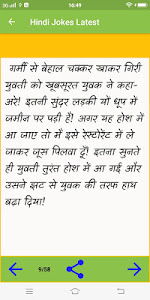 16:49
Hindi Jokes Latest
गर्मी से बेहाल चक्कर खाकर गिरी
युवती को खूबसूरत युवक ने कहा-
अरे! इतनी सुंदर लड़की यों धूप में
जमीन पर पड़ी है! अगर यह होश में
आ जाए तो मैं इसे रेस्टोरेंट में ले
जाकर जूस पिलवा दूँ! इतना सुनते
ही युवती तुरंत होश में आ गई और
उसने झट से युवक की तरफ हाथ
बढा दिया!
9/58